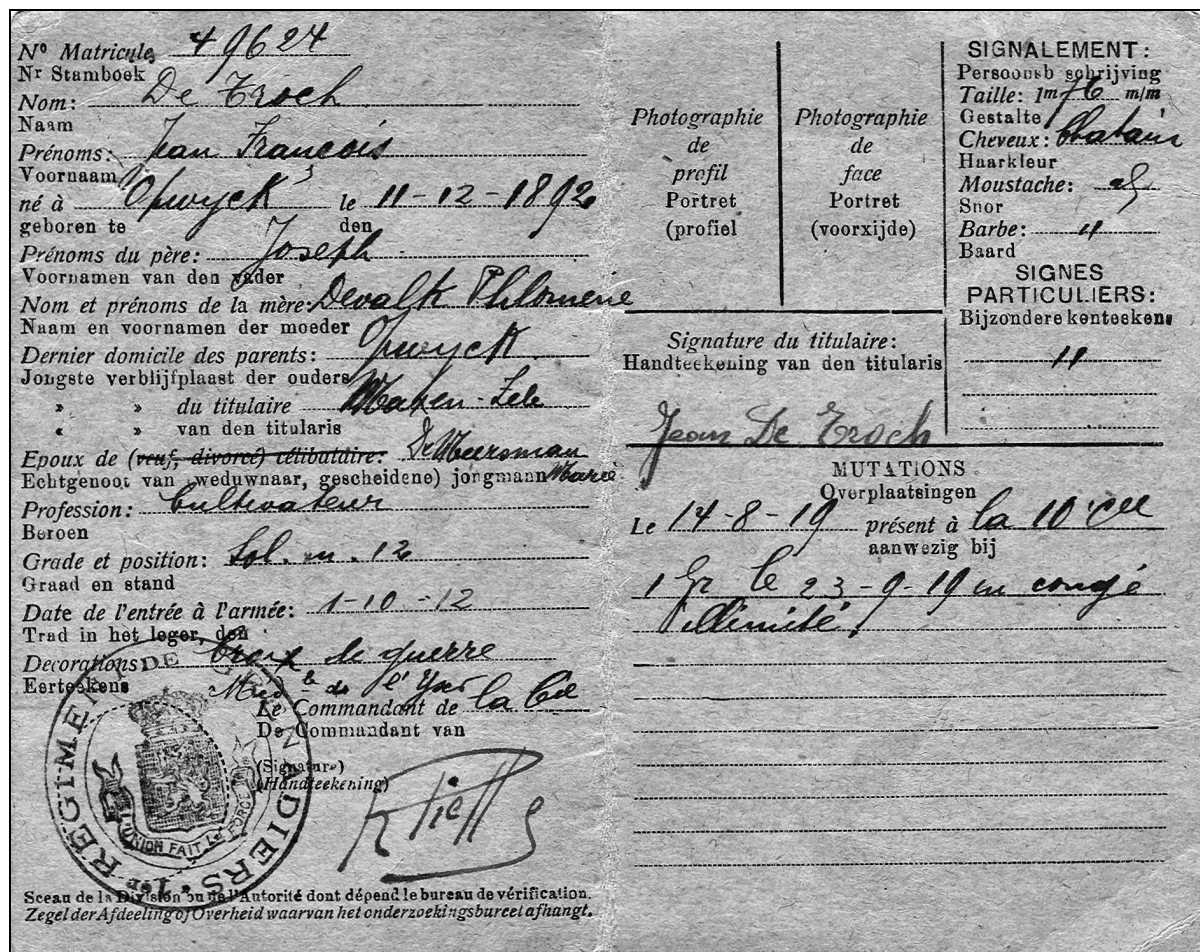 Nº Matricule 49624
Nr Stamboek
Nom: De Troch
Naam
Prénoms: Jean François
Voornaam
né à Opwyck le 11-12-1892
geboren te den
Prénoms du père: Joseph
Voornamen van den vader
Nom et prénoms de la mère: Devalk Philomène
Naam en voornamen der moeder
Dernier domicile des parents: Opwyck
Jongste verblijfplaast der ouders
» » du titulaire
« » van den titularis
Epoux de (veuf, divorcé) célibataire: De Meersman
Echtgenoot van weduwnaar, gescheidene) jongmann Marie
Profession: Cultivateur
Beroen
Grade et position: Sol. m. 12
Graad en stand
Date de l'entrée à l'armée: 1-10-12
Trad in het leger, den
Decorations Croix de guerre
Eerteekens de l'Yser
Le Commandant de la Cie
De Commandant van
(Signature)
(Handteekening)
1er REGIMENT DE GRENADIERS
L'UNION FAIT LA FORCE
Sceau de la Division ou de l'Autorité dont dépend le bureau de vérification.
Zegel der Afdeeling of Overheid waarvan het onderzoekingsbureel afhangt.
Photographie de profil
Portret (profiel
Photographie de face
Portret (voorxijde)
SIGNALEMENT:
Persoonsb schrijving
Taille: 1m 76 m/m
Gestalte
Cheveux: Chatain
Haarkleur
Moustache:
Snor
Barbe: "
Baard
SIGNES
PARTICULIERS:
Bijzondere kenteekens
"
Signature du titulaire:
Handteekening van den titularis
Jean De Troch
MUTATIONS
Overplaatsingen
Le 14-8-19 présent à la 10e Cie
aanwezig bij
1 Gr le 23-9-19 en congé
illimité.